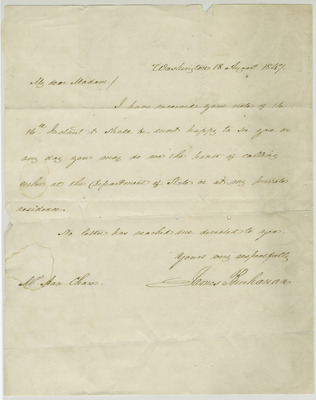 Washington 18 August 1847.
My dear Madam!
I have received your note of the
16th Instant & shall be most happy to see you on
any day you may do me the honor of calling
either at the Department of State or at my private
residence.
No letter has reached me directed to you.
Yours very respectfully
James Buchanan
Mrs Ann Chase.